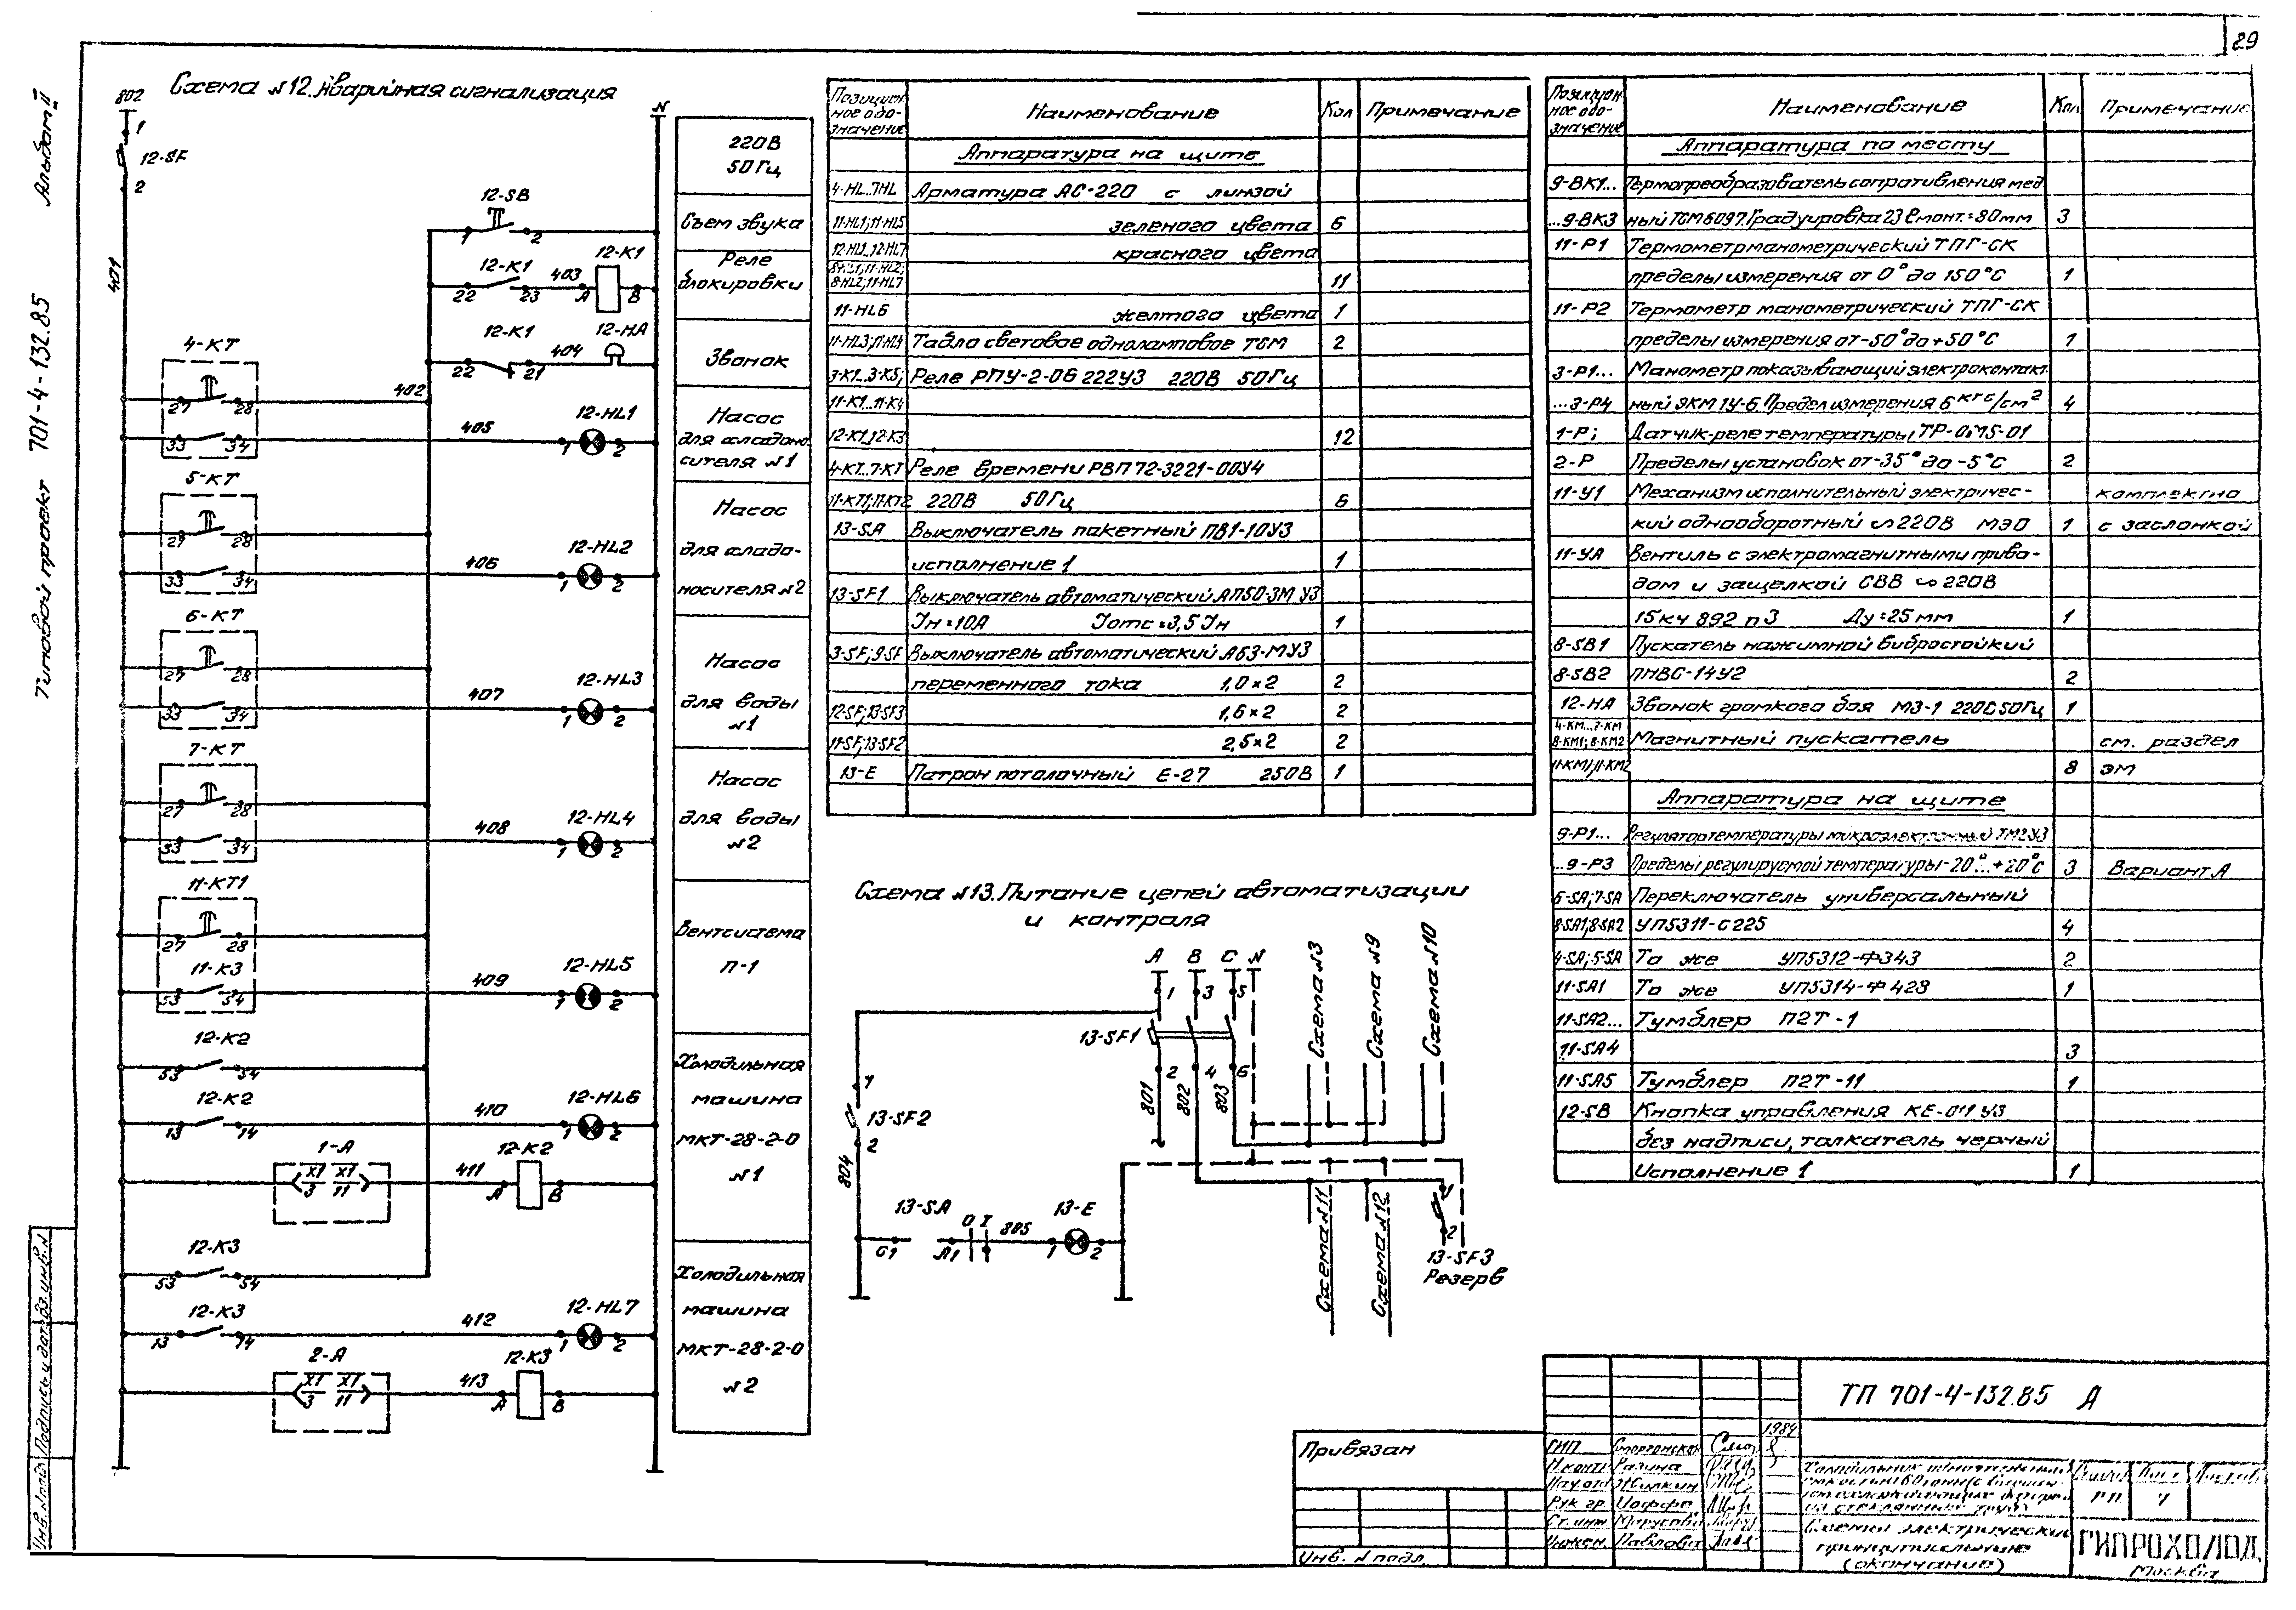 29
Альбом II
Типовой проект 701-4-132.85
Схема №12. Аварийная сигнализация
802
N
1
12-SF
2
401
220В
50Гц
12-SB
1 2
Съем звука
12-K1 403 12-K1
22 23 А В
Реле
блокировки
12-K1 404 12-HA
22 21
Звонок
4-КТ
27 28
402
33 34
405
12-HL1
1 2
Насос
для хладоно
сителя №1
5-КТ
27 28
33 34
406
12-HL2
1 2
Насос
для хладо-
носителя №2
6-КТ
27 28
33 34
407
12-HL3
1 2
Насос
для воды
№1
7-КТ
27 28
33 34
408
12-HL4
1 2
Насос
для воды
№2
11-КТ1
27 28
11-К3
53 54
409
12-HL5
1 2
Вентсистема
П-1
12-К2
53 54
12-К2
13 14
410
12-HL6
1 2
1-А
Х1 Х1
3 11
411
12-К2
А В
Холодильная
машина
МКТ-28-2-0
№1
12-К3
53 54
12-К3
13 14
412
12-HL7
1 2
2-А
Х1 Х1
3 11
413
12-К3
А В
Холодильная
машина
МКТ-28-2-0
№2
Позицион
ное обо-
значение
Наименование
Кол
Примечание
Аппаратура на щите
4-HL..7HL Арматура АС-220 с линзой
11-HL1;11-HL5 зеленого цвета 6
12-HL1..12-HL7 красного цвета
8-HL1;11-HL2;
8-HL2;11-HL7 11
11-HL6 желтого цвета 1
11-HL3;11-HL4 Табло световое одноламповое ТСМ 2
3-К1..3-К5; Реле РПУ-2-06 222У3 220В 50Гц
11-К1..11-К4
12-К1..12-К3 12
4-КТ..7-КТ Реле времени РВП72-3221-00У4
11-КТ1;11-КТ2 220В 50Гц 6
13-SA Выключатель пакетный ПВ1-10У3
исполнение 1 1
13-SF1 Выключатель автоматический АП50-3М У3
Iн=10А Iотс=3,5Iн 1
3-SF;9-SF Выключатель автоматический АБ3-МУ3
переменного тока 1,0×2 2
12-SF;13-SF3 1,6×2 2
11-SF;13-SF2 2,5×2 2
13-Е Патрон потолочный Е-27 250В 1
Позицион
ное обо-
значение
Наименование
Кол.
Примечание
Аппаратура по месту
9-ВК1... Термопреобразователь сопротивления мед
...9-ВК3 ный ТСМ6097. Градуировка 23 ℓ монт.=80мм 3
11-Р1 Термометр манометрический ТПГ-СК
пределы измерения от 0° до 150°С 1
11-Р2 Термометр манометрический ТПГ-СК
пределы измерения от -50° до +50°С 1
3-Р1... Манометр показывающий электроконтакт
...3-Р4 ный ЭКМ 1У-6. Предел измерения 6 кгс/см² 4
1-Р; Датчик-реле температуры, ТР-ОМ5-01
2-Р Пределы установок от -35° до -5°С 2
11-У1 Механизм исполнительный электричес- комплектно
кий однооборотный ~220В МЭО 1 с заслонкой
11-УА Вентиль с электромагнитными приво-
дом и защелкой СВВ ~220В
15кч 892 п3 Ду=25мм 1
8-SB1 Пускатель нажимной вибростойкий
8-SB2 ПНВС-14У2 2
12-НА Звонок громкого боя МЗ-1 220В 50Гц 1
4-КМ...7-КМ
8-КМ1; 8-КМ2 Магнитный пускатель см. раздел
11-КМ1;11-КМ2 8 ЭМ
Аппаратура на щите
9-Р1... Регулятор температуры микроэлектронный ТМ2У3
...9-Р3 Пределы регулируемой температуры -20°...+20°С 3 Вариант А
6-SA;7-SA Переключатель универсальный
8-SA1;8-SA2 УП5311-С225 4
4-SA;5-SA То же УП5312-Ф343 2
11-SA1 То же УП5314-Ф428 1
11-SA2... Тумблер П2Т-1
11-SA4 3
11-SA5 Тумблер П2Т-11 1
12-SB Кнопка управления КЕ-011 У3
без надписи, толкатель черный
Исполнение 1 1
Схема №13. Питание цепей автоматизации
и контроля
А В С N
1 3 5
13-SF1
2 4 6
801
802
803
Схема №3
Схема №9
Схема №10
1
13-SF2
2
804
13-SA
С1 Л1
0 I
805
13-Е
1 2
Схема №11
Схема №12
1
2
13-SF3
Резерв
Привязан
Инв. № подл.
ТП 701-4-132.85 А
1984
ГИП
Н.контр Разина
Нач.отд Жилкин
Рук гр. Иоффе
Ст.инж Марусова
Инжен. Павлова
РП
7
Схемы электрические
принципиальные
(окончание)
ГИПРОХОЛОД
Москва
Инв.№подл Подпись и дата Вз.инв.№